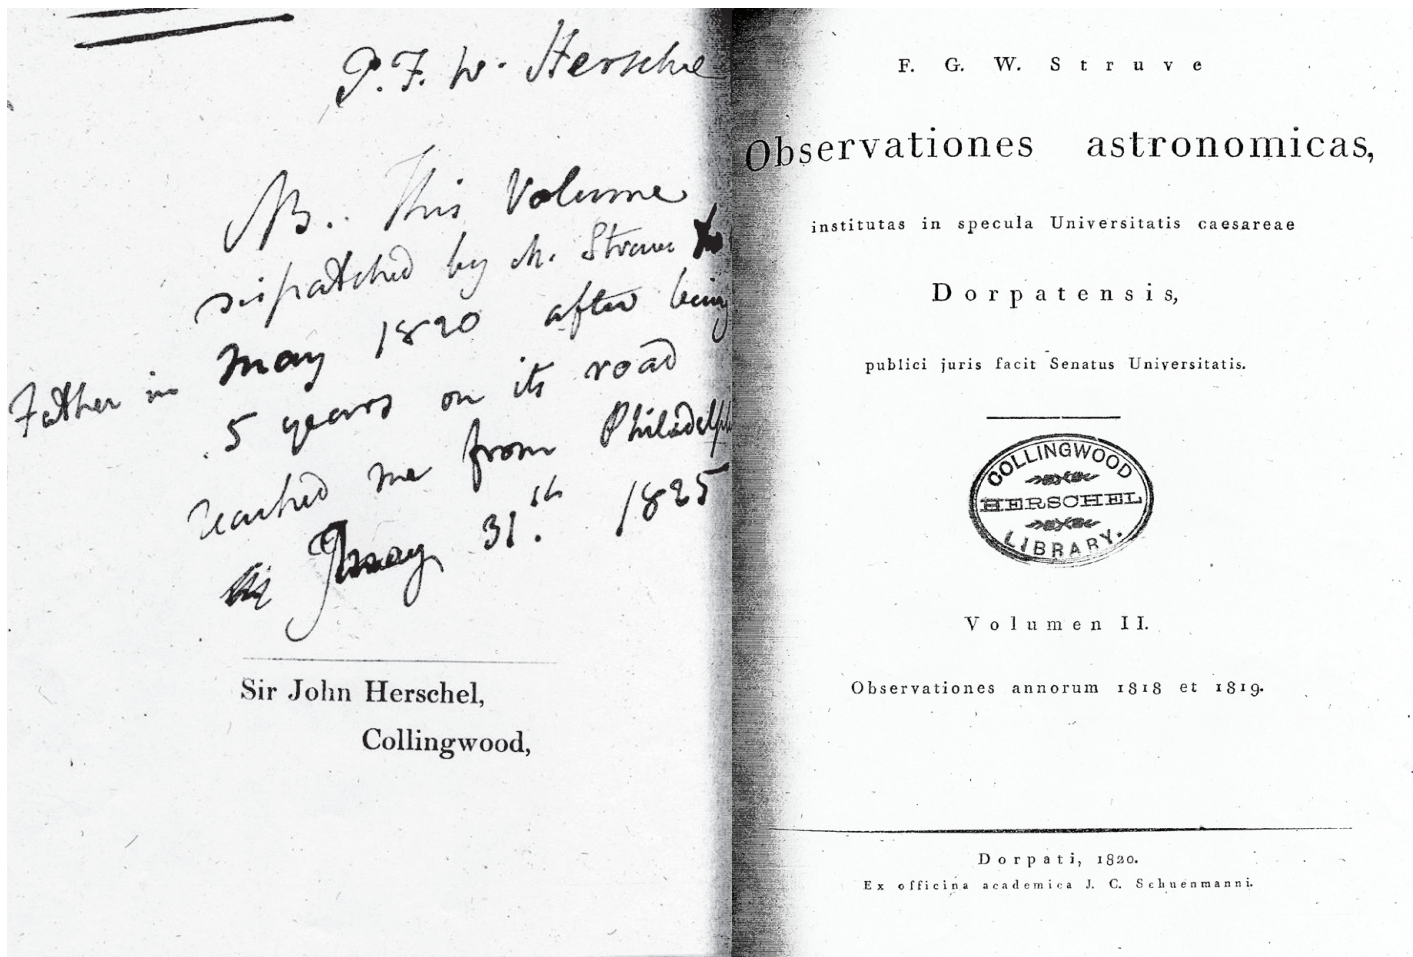 J. F. W. Herschel
NB. This Volume
dispatched by M. Struve to
Father in May 1820 after being
5 years on its road
reached me from Philadelph
May 31.st 1825
Sir John Herschel,
Collingwood,
F. G. W. Struve
Observationes astronomicas,
institutas in specula Universitatis caesareae
Dorpatensis,
publici juris facit Senatus Universitatis.
COLLINGWOOD
HERSCHEL
LIBRARY.
Volumen II.
Observationes annorum 1818 et 1819.
Dorpati, 1820.
Ex officina academica J. C. Schuenmanni.